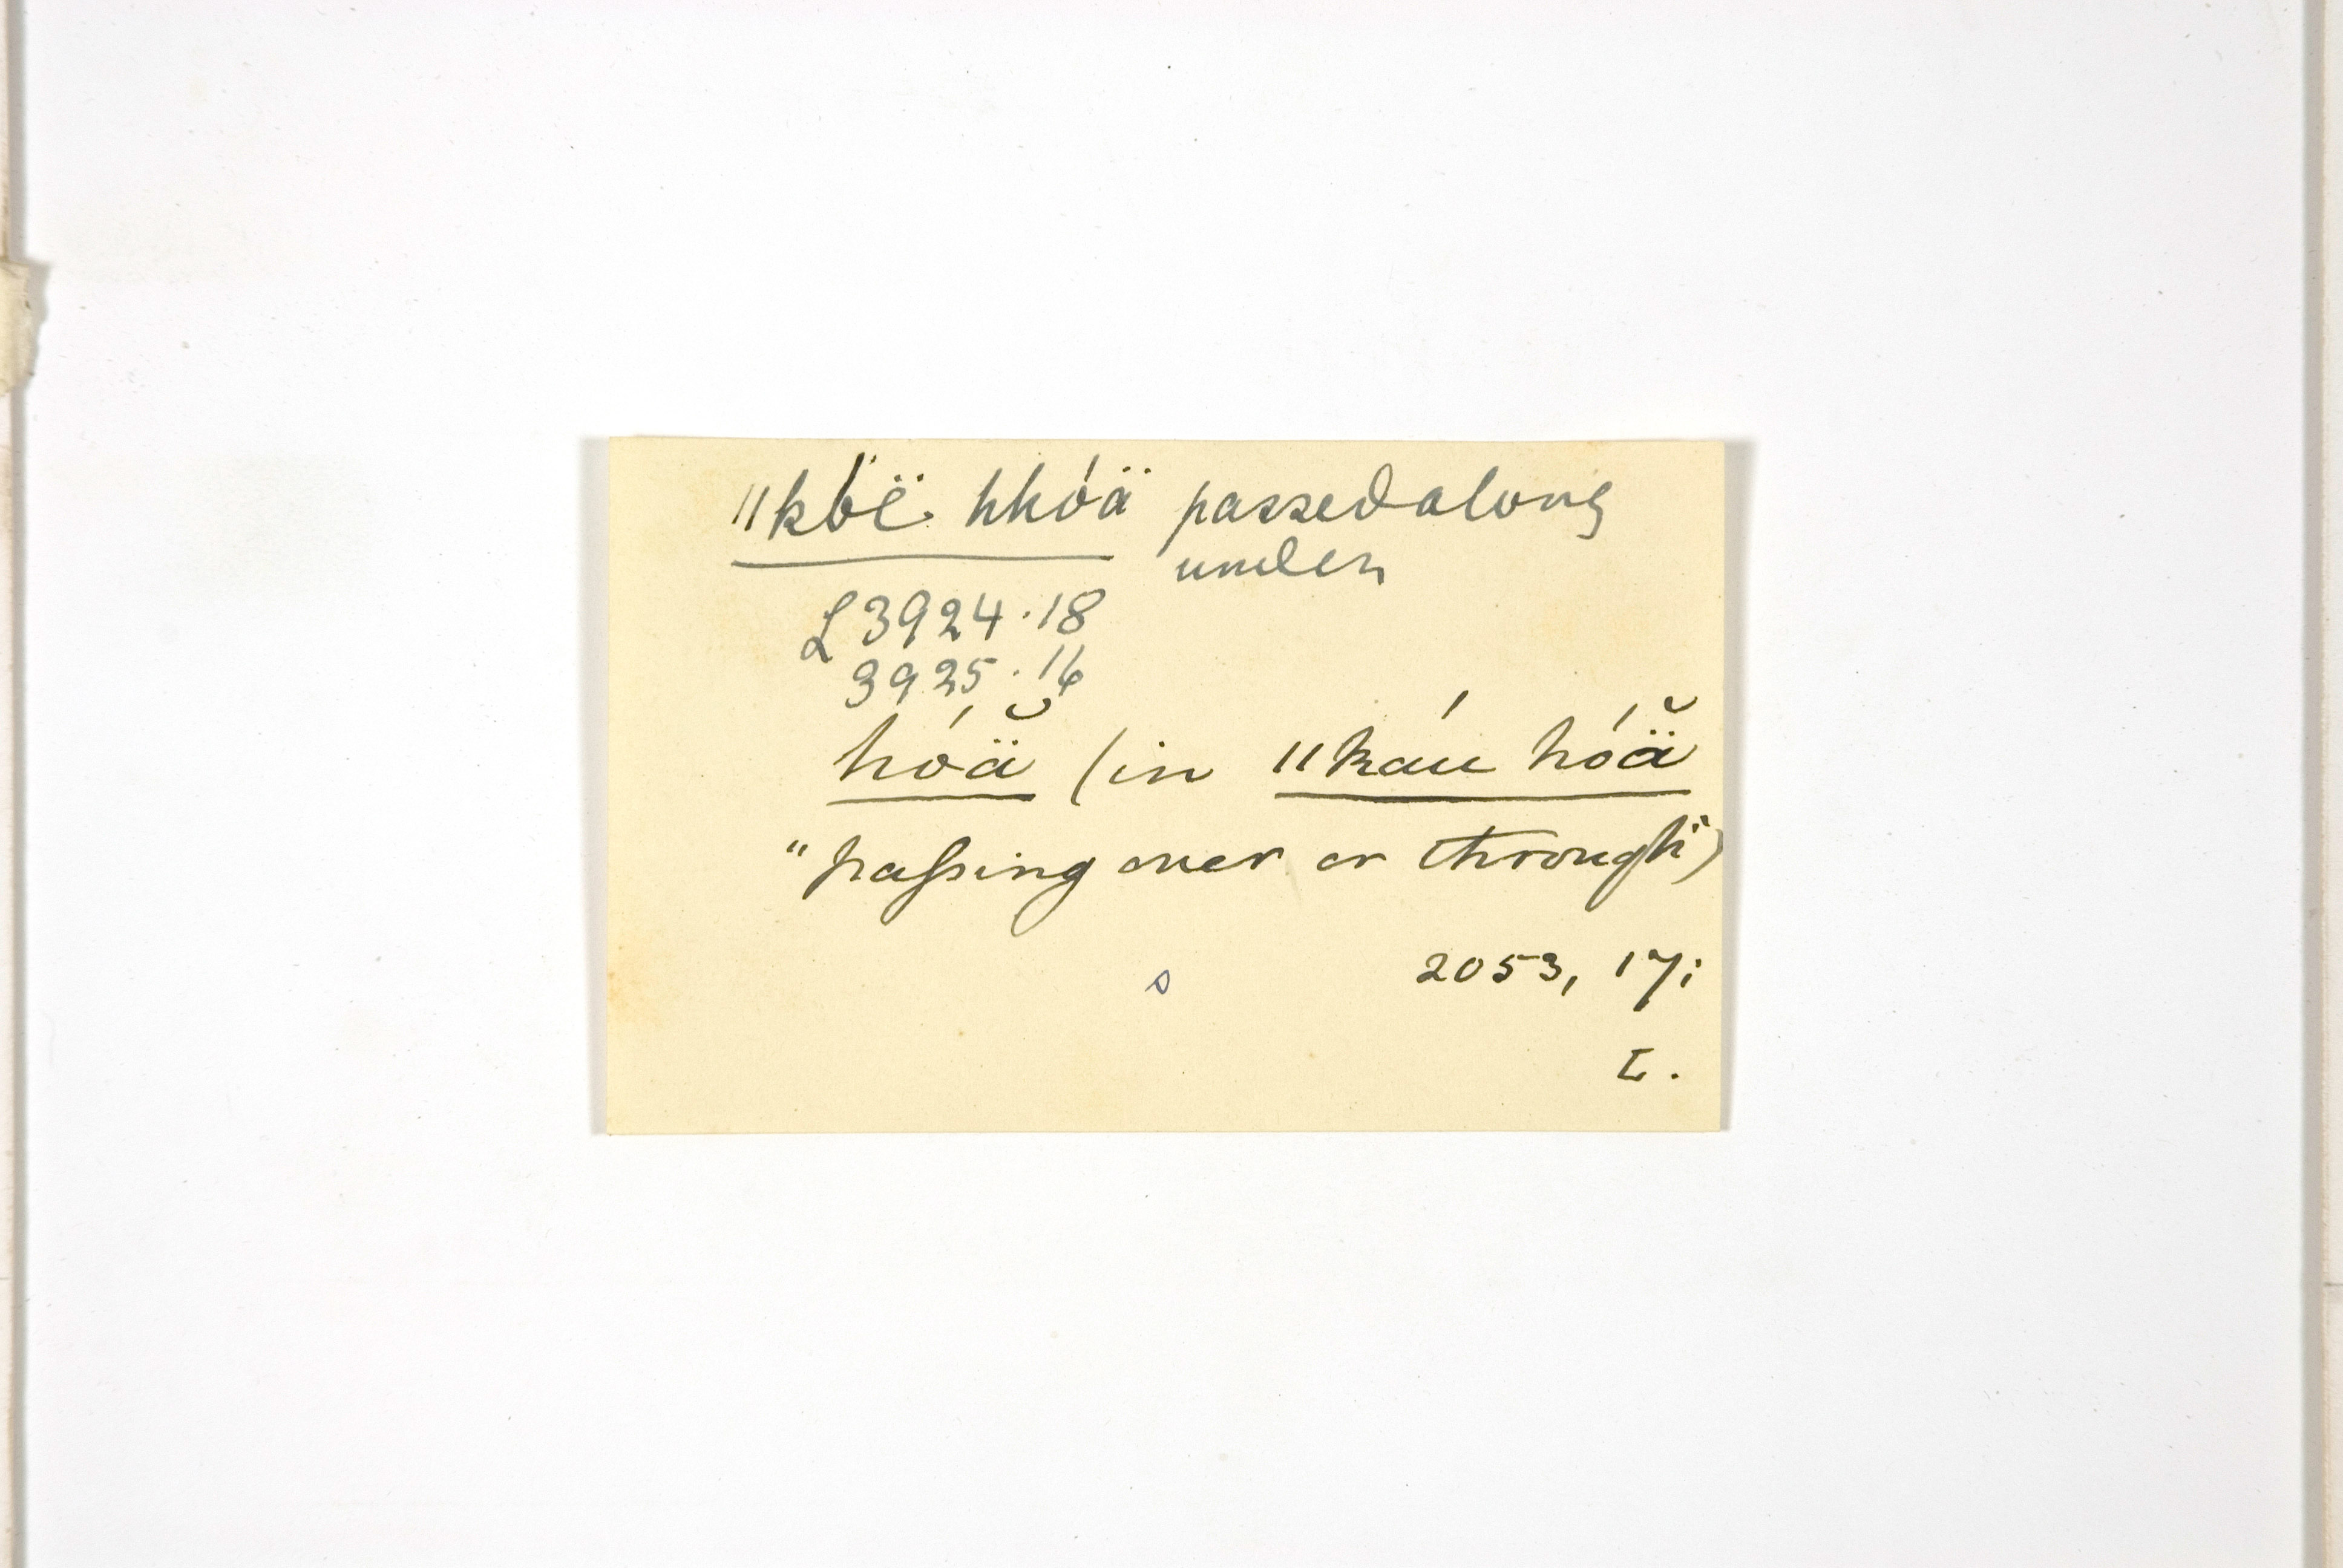 ǁkóë hhóä passed along
under
L 3924.18
3925.16
hóä̆ (in ǁkáu hóä̆
"passing over or through")
s
2053, 17;
L.